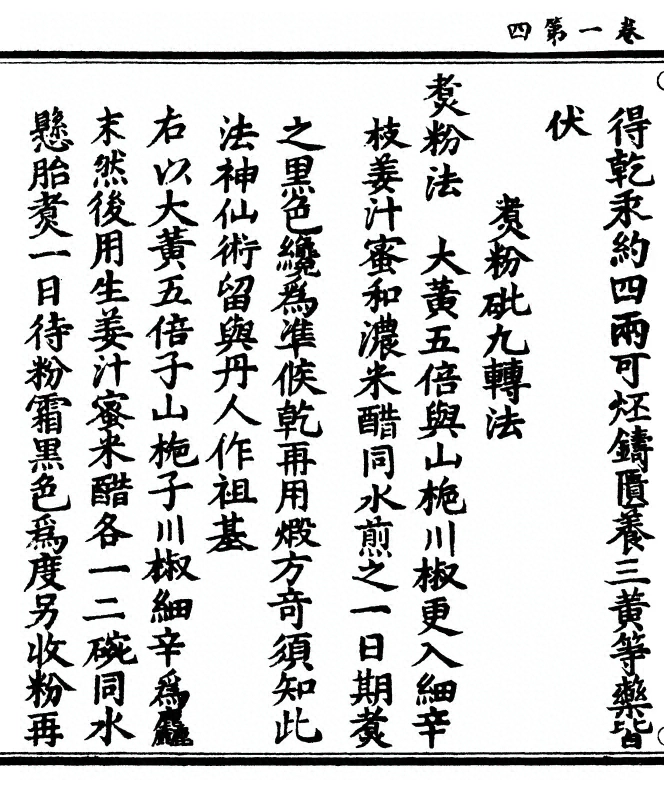 卷一第四
得乾汞約四兩可炷鑄匱養三黃等藥皆
伏
煑粉砒九轉法
煑粉法　大黃五倍與山梔川椒更入細辛
枝姜汁蜜和濃米醋同水煎之一日期煑
之黑色纔為凖候乾再用煅方奇須知此
法神仙術留與丹人作祖基
右以大黃五倍子山梔子川椒細辛為麤
末然後用生姜汁蜜米醋各一二碗同水
懸胎煑一日待粉霜黑色為度另收粉再